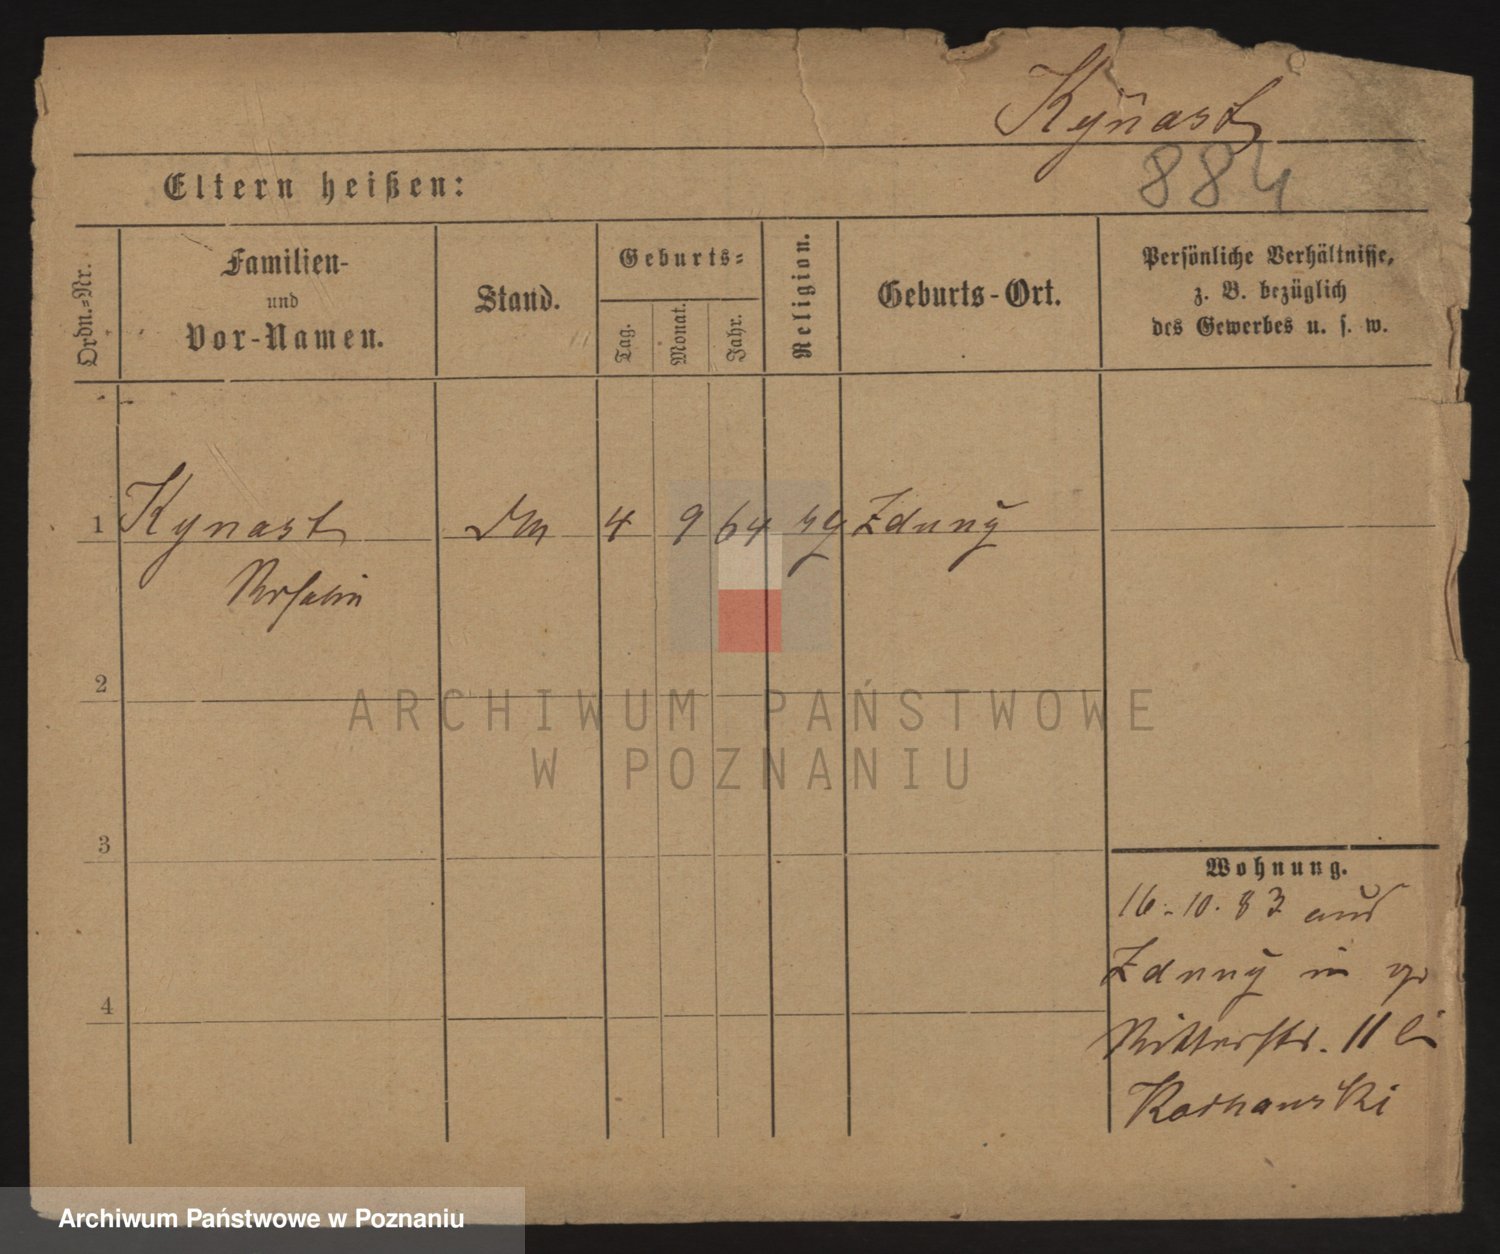 Kynast
884
Eltern heißen:
Ordn.-Nr.
Familien-
und
Vor-Namen.
Stand.
Geburts-
Tag.
Monat.
Jahr.
Religion.
Geburts-Ort.
Persönliche Verhältnisse,
z. B. bezüglich
des Gewerbes u. s. w.
1 Kynast 4 9 64 Zduny
2
3
4
Wohnung.
16.10.83 aus
Zduny in
Ritterstr. 11 bei
ARCHIWUM PAŃSTWOWE
W POZNANIU
Archiwum Państwowe w Poznaniu